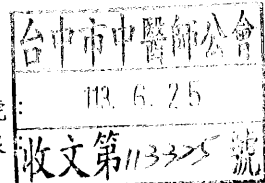 台中市中醫師公會
113. 6. 25
收文第113325號